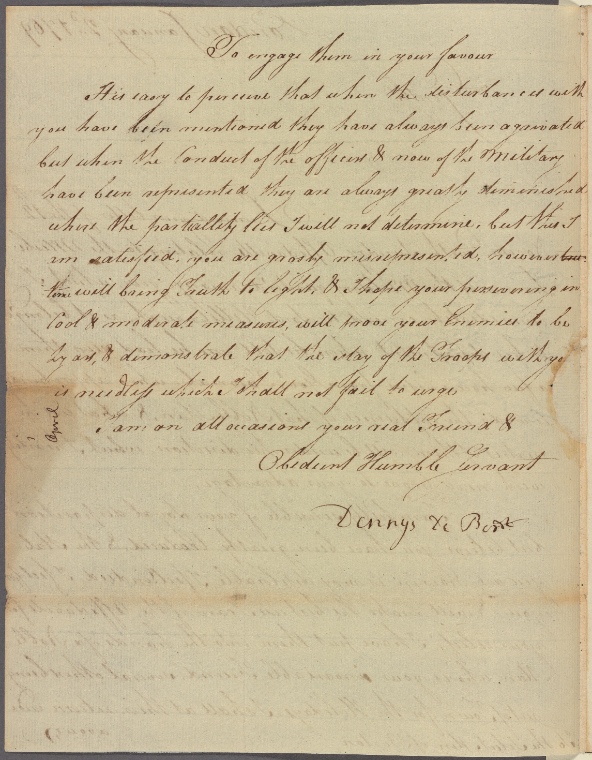 To engage them in your favour
It is easy to perceive that when the disturbances with
you have been mentioned they have always been agrivated
but when the Conduct of the officers & now of the military
have been represented they are always greatly diminished
where the partiallity lies I will not determine, but this I
am satisfied, you are grosly missrepresented, however
time will bring Truth to light, & I hope your persevering in
Cool & moderate measures, will prove your Enemies to be
lyars, & demonstrate that the stay of the Troops with you
is needless which I shall not fail to urge
I am on all occasions your real Friend &
Obedient Humble Servant
Dennys De Berdt
April